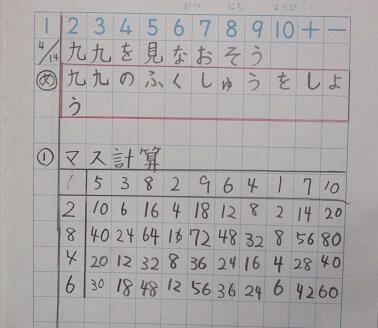 がつ にち ようび
1 2 3 4 5 6 7 8 9 10 + −
4/14 九九を見なおそう
め 九九のふくしゅうをしよ
う
① マス計算
5 3 8 2 9 6 4 1 7 10
2 10 6 16 4 18 12 8 2 14 20
8 40 24 64 16 72 48 32 8 56 80
4 20 12 32 8 36 24 16 4 28 40
6 30 18 48 12 56 36 24 6 42 60